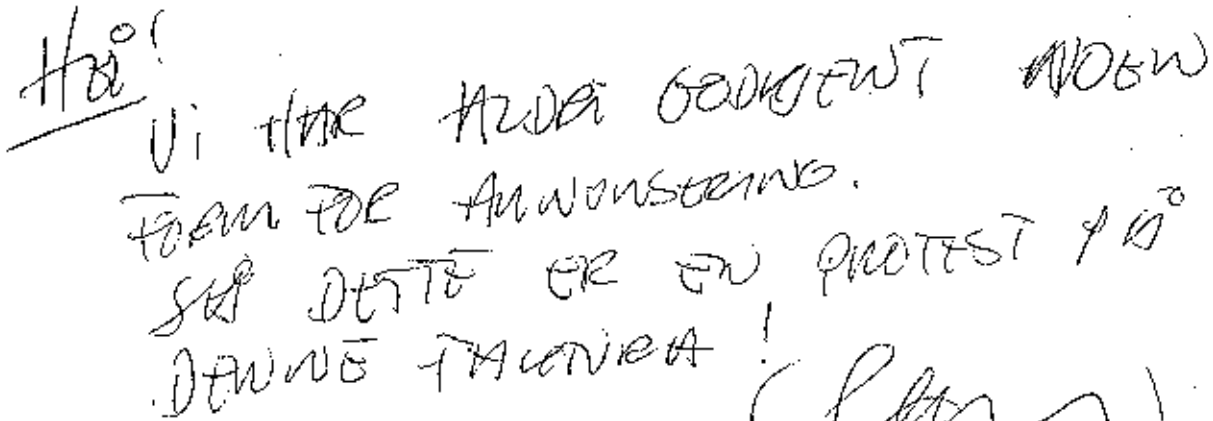 Hei!
Vi HAR ALDRI GODKJENT NOEN
FORM FOR ANNONSERING.
SÅ DETTE ER EN PROTEST PÅ
DENNE FAKTURA!